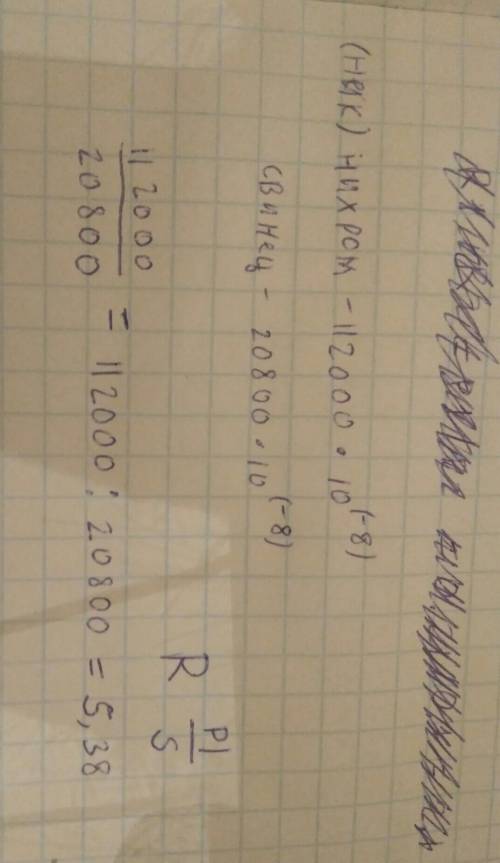 (НИК) Нихром - 112000 · 10^(-8)
свинец - 20800 · 10^(-8)
112000/20800 = 112000 : 20800 = 5,38
R pl/S